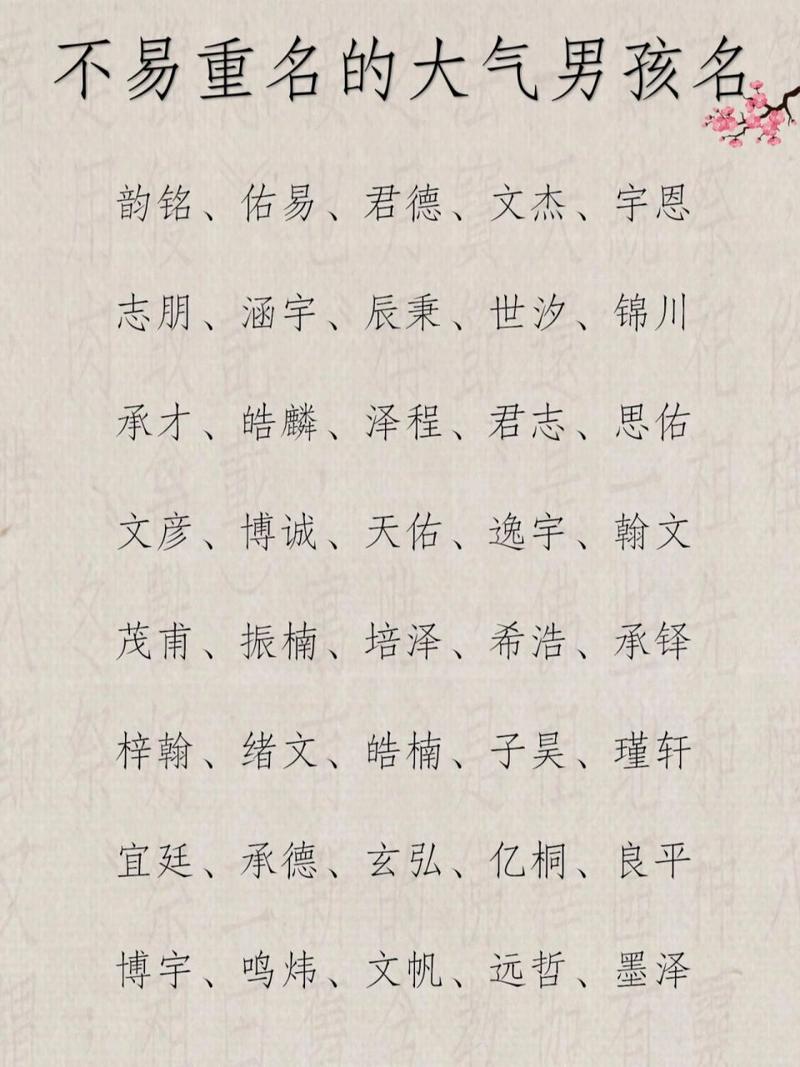 不易重名的大气男孩名
韵铭、佑易、君德、文杰、宇恩
志朋、涵宇、辰秉、世汐、锦川
承才、皓麟、泽程、君志、思佑
文彦、博诚、天佑、逸宇、翰文
茂甫、振楠、培泽、希浩、承铎
梓翰、绪文、皓楠、子昊、瑾轩
宜廷、承德、玄弘、亿桐、良平
博宇、鸣炜、文帆、远哲、墨泽